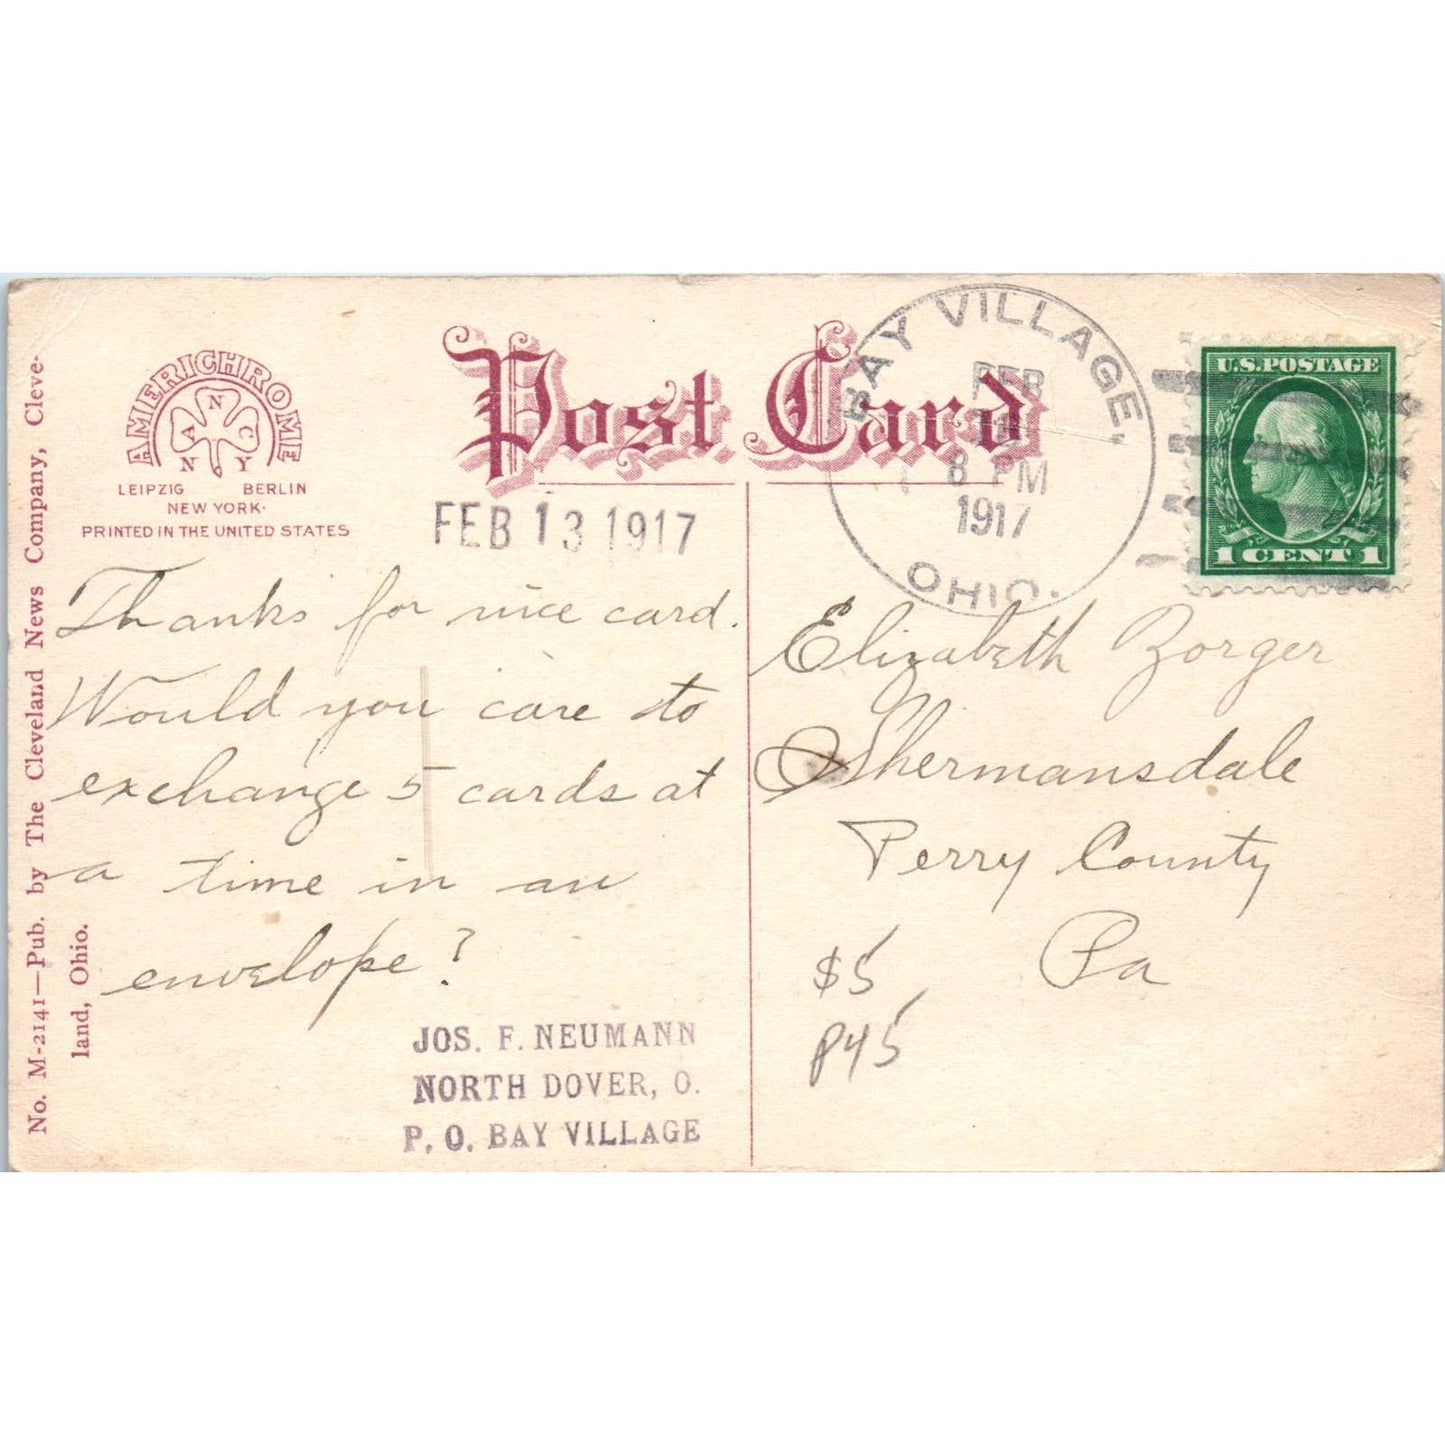 No. M-2141—Pub. by The Cleveland News Company, Cleve-
land, Ohio.
AMERICHROME
N
A C
N Y
LEIPZIG BERLIN
NEW YORK.
PRINTED IN THE UNITED STATES
Post Card
FEB 13 1917
Thanks for nice card.
Would you care to
exchange 5 cards at
a time in an
envelope?
JOS. F. NEUMANN
NORTH DOVER, O.
P. O. BAY VILLAGE
BAY VILLAGE,
FEB
8 PM
1917
OHIO.
U.S. POSTAGE
1 CENT 1
Elizabeth Zorger
Shermansdale
Perry County
Pa
$5
P45